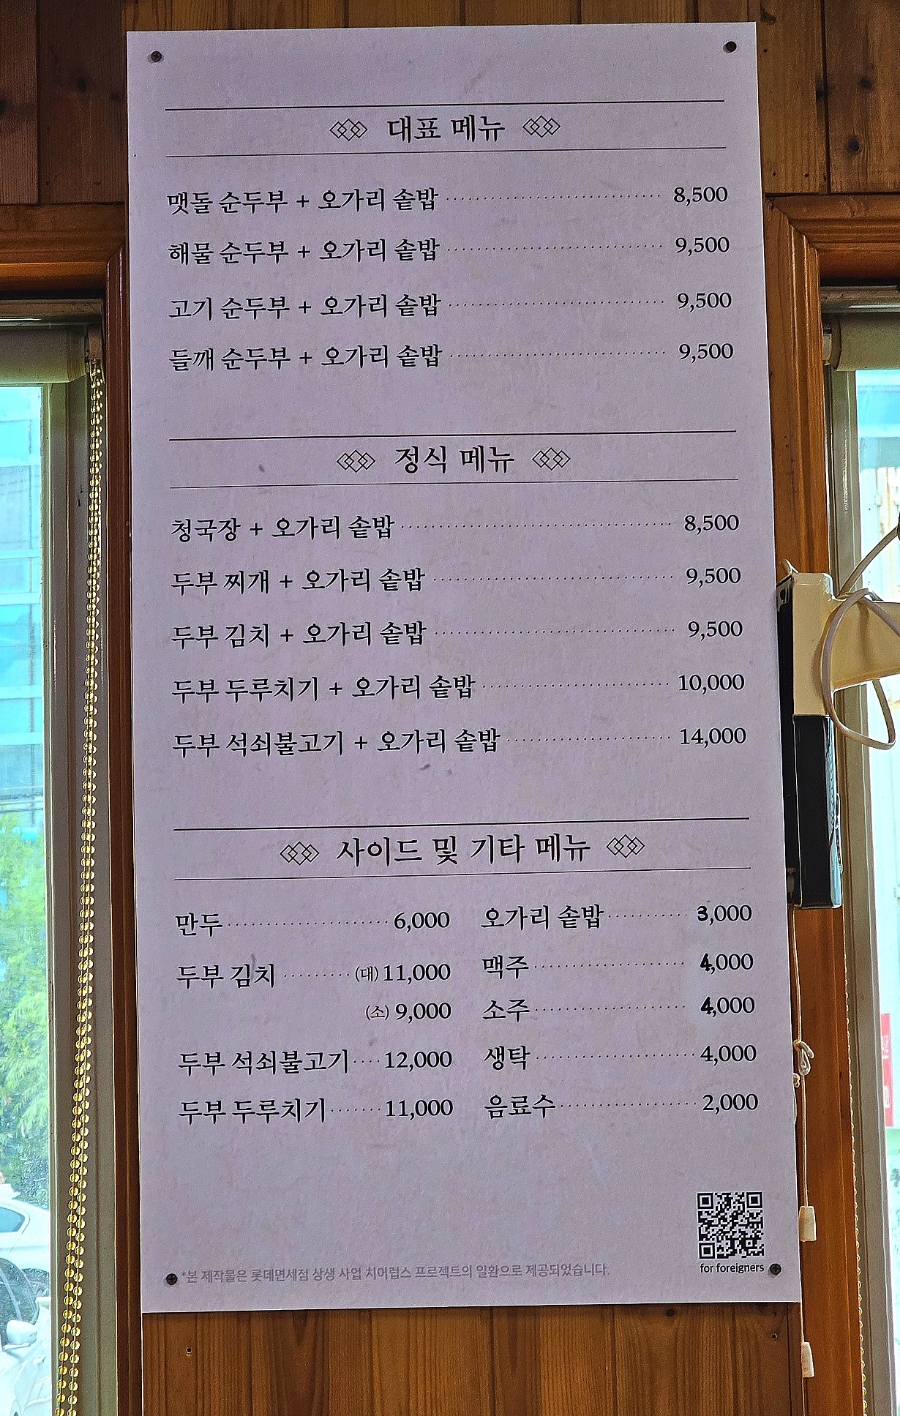 대표 메뉴
맷돌 순두부 + 오가리 솥밥 8,500
해물 순두부 + 오가리 솥밥 9,500
고기 순두부 + 오가리 솥밥 9,500
들깨 순두부 + 오가리 솥밥 9,500
정식 메뉴
청국장 + 오가리 솥밥 8,500
두부 찌개 + 오가리 솥밥 9,500
두부 김치 + 오가리 솥밥 9,500
두부 두루치기 + 오가리 솥밥 10,000
두부 석쇠불고기 + 오가리 솥밥 14,000
사이드 및 기타 메뉴
만두 6,000
두부 김치 (대) 11,000
(소) 9,000
두부 석쇠불고기 12,000
두부 두루치기 11,000
오가리 솥밥 3,000
맥주 4,000
소주 4,000
생탁 4,000
음료수 2,000
for foreigners
*본 제작물은 롯데면세점 상생 사업 치어럽스 프로젝트의 일환으로 제공되었습니다.